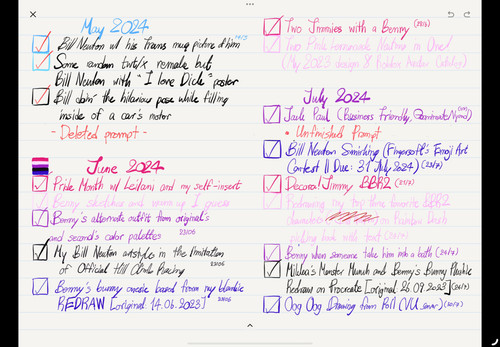 May 2024
Bill Newton w/ his trans mug picture of him
Some random twt/x remake but
Bill Newton with "I love Dick" poster
Bill doin' the hilarious pose while filling
inside of a car's motor
- Deleted prompt -
June 2024
Pride Month w/ Leilani and my self-insert
Benny sketches and warm up I guess
Benny's alternate outfit from original's
and second's color palettes 23/06
My Bill Newton artstyle in the limitation
of Official Hill Climb Racing 23/06
Benny's bunny onesie based from my blankie
REDRAW [original 14.06.2023] 23/06
Two Jimmies with a Benny
in One!
(My 2023 design &
July 2024
Jack Paul (Business Friendly
* Unfinished Prompt
Bill Newton Smirking (Fingersoft's Emoji Art
Contest || Due: 31 July 2024) (23/7)
Decoral Jimmy BBR2
Redrawing my top three favorite BBR2
characters on Rainbow Dash
Benny when someone take him into a bath (24/7)
Mildea's Monster Munch and Benny's Bunny Plushie
Redraw on Procreate [original 26.09.2023]
Oog Oog Drawing from